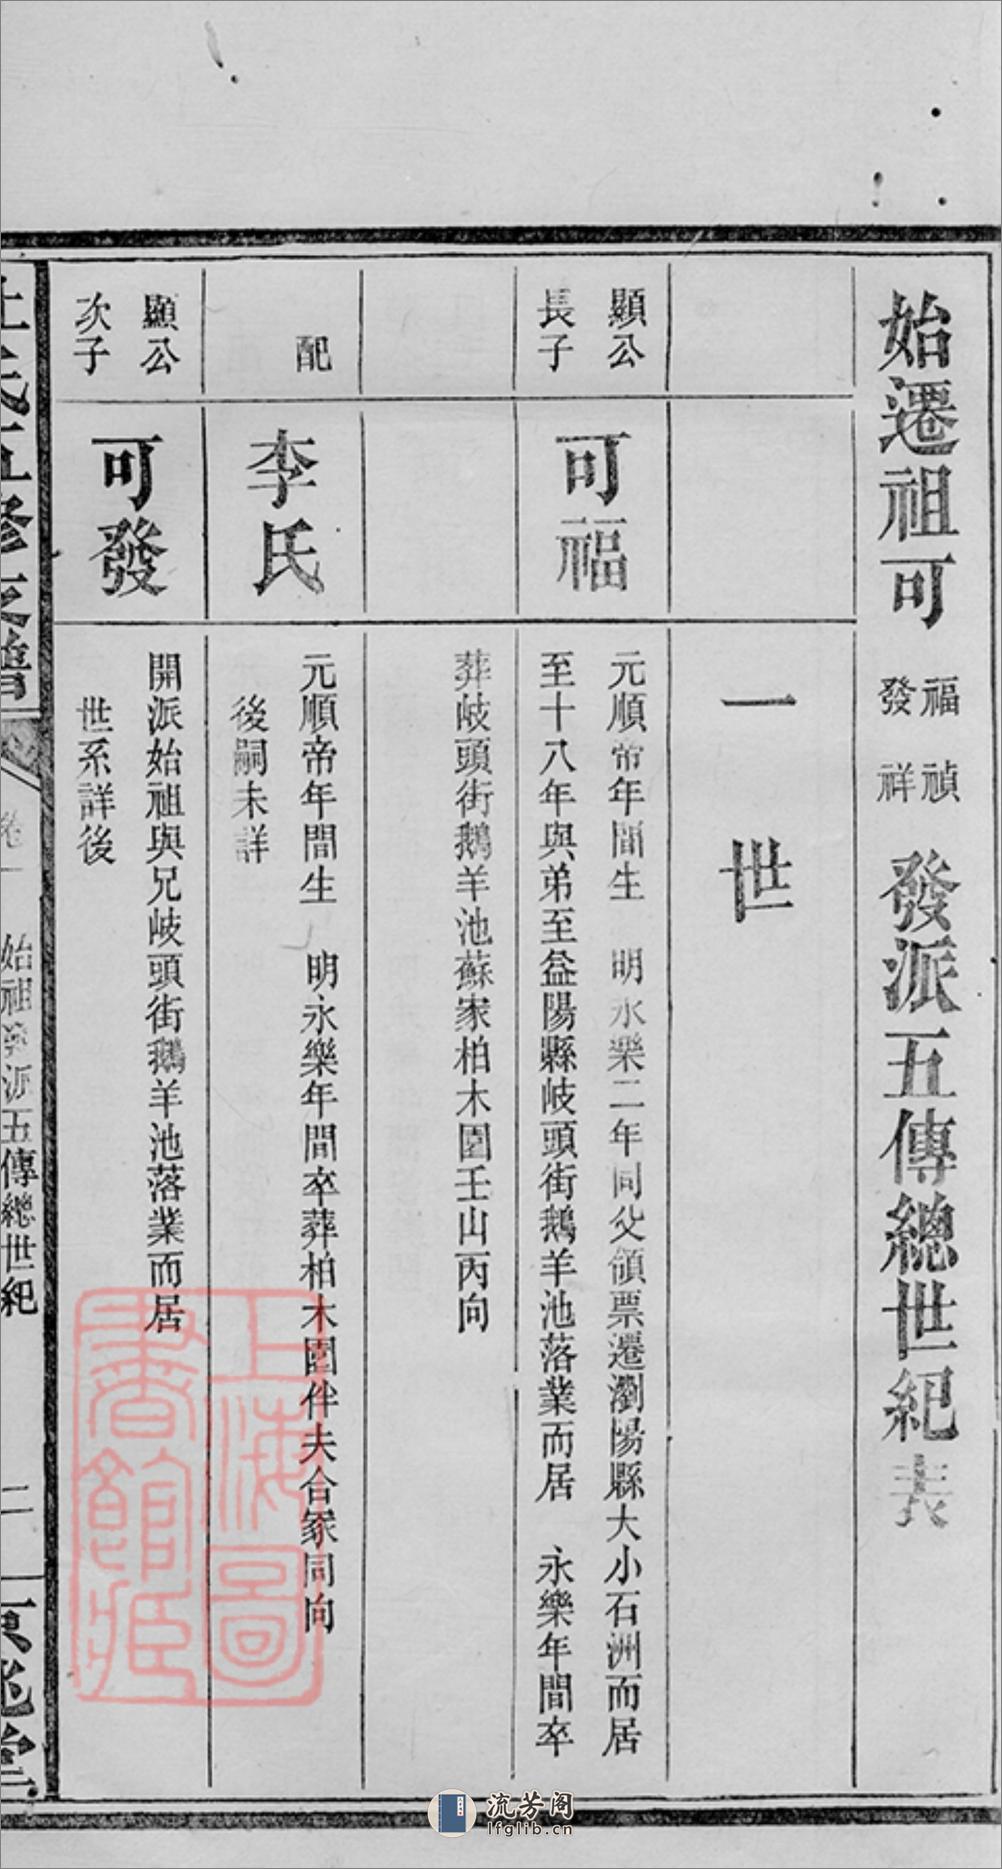 始遷祖可福禎發祥發派五傳總世紀表
一世
顯公
長子
可福
元順帝年間生 明永樂二年同父領票遷瀏陽縣大小石洲而居
至十八年與弟至益陽縣岐頭街鵝羊池落業而居 永樂年間卒
葬岐頭街鵝羊池蘇家柏木園壬山丙向
配
李氏
元順帝年間生 明永樂年間卒葬柏木園伴夫合冢同向
後嗣未詳
顯公
次子
可發
開派始祖與兄岐頭街鵝羊池落業而居
世系詳後
五修支譜
卷一
始祖發派五傳總世紀
二
上海圖書館藏
流芳阁
lfglib.cn